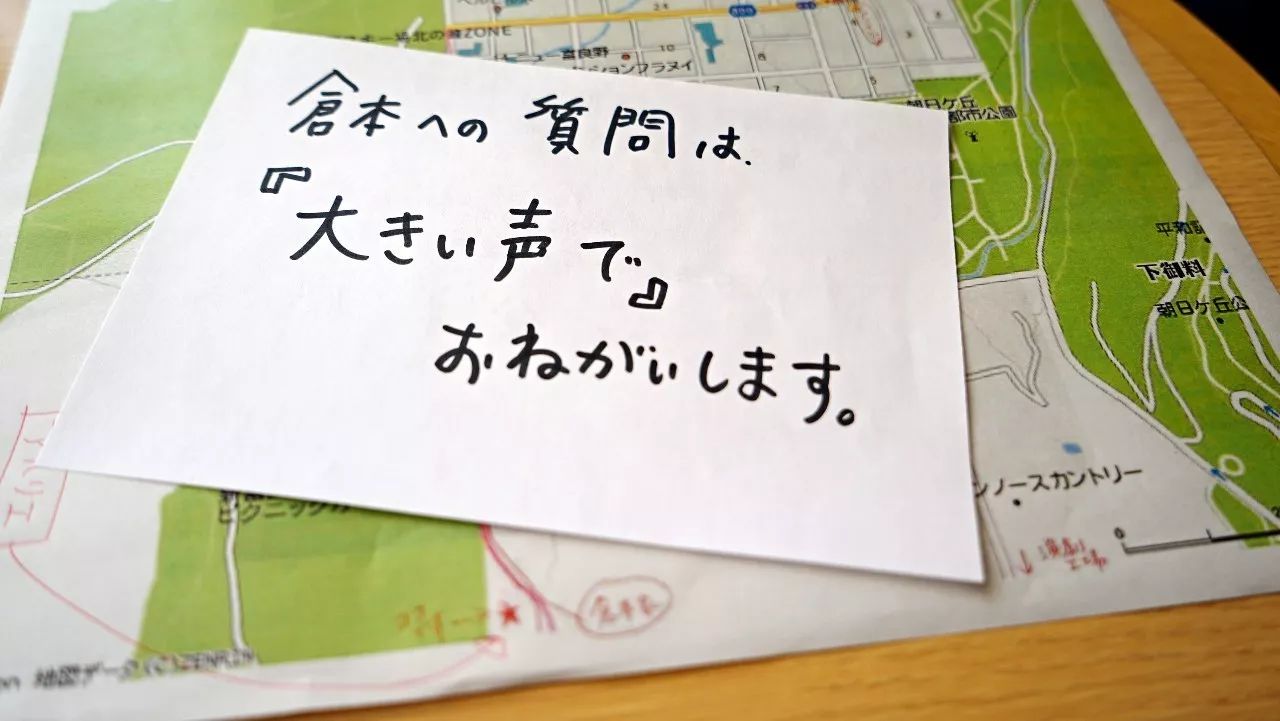 北の峰ZONE
富良野
ションフラヌイ
24
10
8
7
5
3
朝日ケ丘
都市公園
倉本への質問は、
『大きい声で』
おねがいします。
下御料
朝日ケ丘公
ノースカントリー
アトリエ
ピクニックガ
演劇
工場
0
地図データ(C)ZENRIN